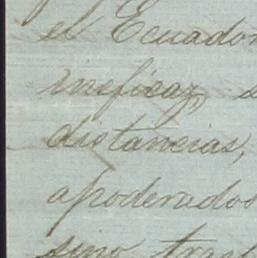 el Ecuador
ineficaz,
distancias,
apoderados
sino